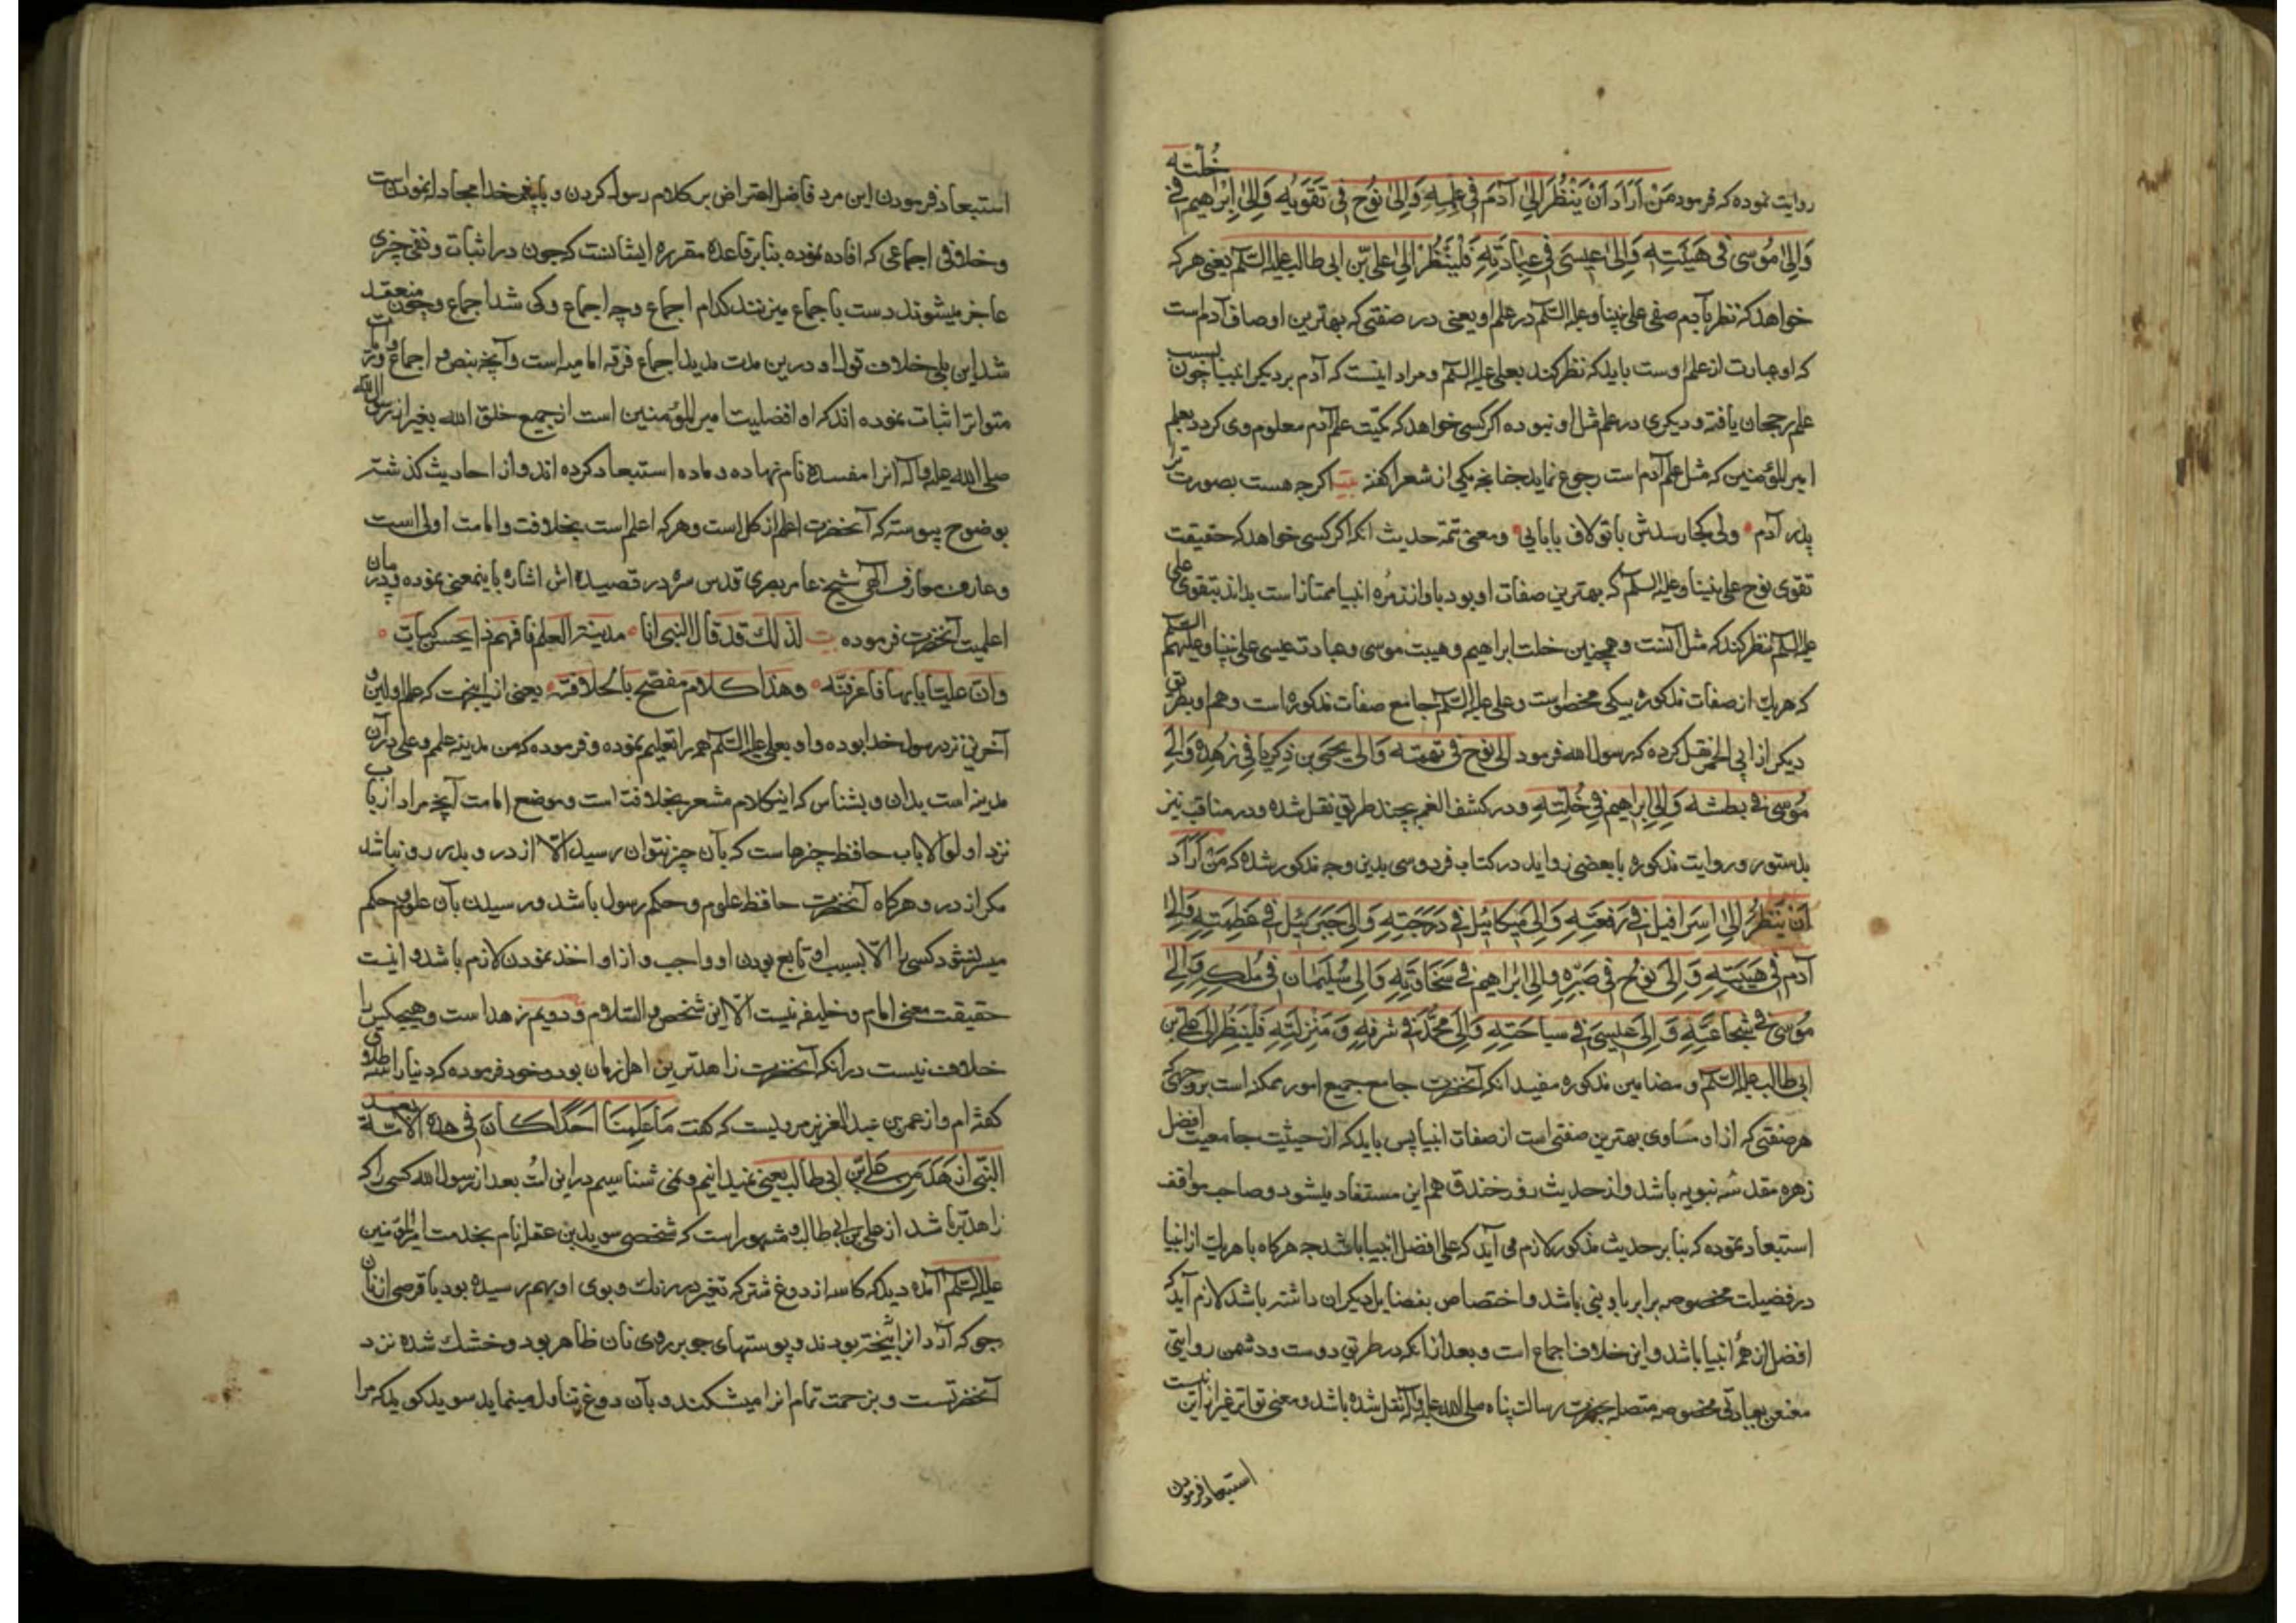 روایت نموده که فرمود مَنْ اَرَادَ اَنْ یَنْظُرَ اِلیٰ آدَمَ فی عِلمِهِ وَاِلیٰ نُوُحٍ فی تَقَوٰیُه وَاِلیٰ اِبْراهیم فی خُلّته
وَاِلیٰ مُوُسی فی هَیْبَتِهِ وَاِلیٰ عیسَی فی عِبادَتِهِ فَلْیَنْظُرْ اِلیٰ علی بّن ابی طالب علیه السّلم یعنی هر که
خواهد که نظر بآدم صفی علی نبینا وعلیه السّلم در علم او یعنی در صفتی که بهترین اوصاف آدم است
که او عبارت از علم اوست باید که نظر کند بعلی علیه السّلم و مراد اینست که آدم بر دیکر انبیا چون بسبب
علم رجحان یافته و دیکری در علم مثل او نبوده اکر کسی خواهد که کمیّت علم آدم معلوم وی کردد بعلم
امیر المؤمنین که مثل علم آدم است رجوع نماید چنانچه یکی از شعرا کفته بیت اکرچه هست بصورت ترا
پدر آدم • ولی کجا رسدش باتو لاف بابایی • ومعنی تتمه حدیث انکه اکر کسی خواهد که حقیقت
تقوی نوح علی نبینا وعلیه السلم که بهترین صفات او بود باو از زمره انبیا ممتاز است بداند بتقوی علی
علیه السلم نظر کند که مثل آنست و همچنین خلت ابراهیم و هیبت موسی و عبادت عیسی علی نبینا وعلیهم السّلم
که هریك از صفات مذکوره بیکی مخصوصست و علی علیه السّلم جامع صفات مذکوره است و هم او بطریق
دیکر از ابی الحمرا نقل کرده که رسول الله فرمود الی نوح فی تهمته وَالی یحیَی بن ذکریا فی زهْدِه وَالِیٰ
مُوُسی فی بطشه وَاِلیٰ اِبراهیم فی خُلّتِهِ و در کشف الغمه بچند طریق نقل شده و در مناقب نیز
بدستور و روایت مذکوره با بعضی زواید در کتاب فردوسی بدین وجه مذکور شده که مَنْ اَرَادَ
اَنْ یَنْظُرُ اِلیٰ اِسِرَافیل فی رَفعَتِهِ وَاِلیٰ میکائیل فی دَرَجَتِهِ وَاِلیٰ جَبَرَئیل فی عَظمَتِهِ وَاِلیٰ
آدم فی هَیبَتِهِ وَاِلیٰ نوُح فی صَبْرِهِ والی ابراهیم فی سَخَاوَتِهِ وَاِلی سُلیَمٰان فی مُلکِهِ وَاِلیٰ
مُوسیٰ فی شجَاعَتِهِ وَاِلیٰ عیسیَ فی سیاحَتِهِ وَاِلیٰ مُحَمَّد فی شَرَفِهِ وَ مَنْزِلَتِهِ فَلْیَنظُر اِلی علی بن
ابی طالب علیه السّلم و مضامین مذکوره مفید انکه آنحضرت جامع جمیع امور ممکنه است بر وجهی که
هر صفتی که از او مساوی بهترین صفتی است از صفات انبیا پس باید که از حیثیت جامعیت افضل
زهره مقدسه نبویه باشد و از حدیث روز خندق هم این مستفاد میشود و صاحب مواقف
استبعاد نموده که بنا بر حدیث مذکور لازم می آید که علی افضل انبیا باشد چه هرکاه با هریك از انبیا
در فضیلت مخصوصه برابر با نبی باشد و اختصاص بفضایل دیکران داشته باشد لازم آید که
افضل از همه انبیا باشد و این خلاف اجماع است و بعد از انکه در طریق دوست و دشمن روایتی
معنعن بعبادتی مخصوصه متصله بحضرت رسالت پناه صلی الله علیه وآله نقل شده باشد و معنی تواتر غیر از این نیست
استبعاد فرمودن
استبعاد فرمودن این مرد فاضل اعتراض بر کلام رسول کردن و با پیغمبر خدا مجادله نمودنست
و خلافی اجماعی که افاده نموده بنا بر قاعده مقرره ایشانست که چون در اثبات و نفی چیزی
عاجز میشوند دست باجماع میزنند کدام اجماع و چه اجماع و کی شد اجماع و چون منعقد
شد این بلی خلاف قول او درین مدت مدید اجماع فرقه امامیه است و آنچه بنص و اجماع واثر
متواتر اثبات نموده اند که او افضلیت امیر المؤمنین است از جمیع خلق الله بغیر از رسول الله
صلی الله علیه وآله انرا مفسده نام نهاده و ماده استبعاد کرده اند و از احادیث کذشته
بوضوح پیوسته که آنحضرت اعلم از کل است و هرکه اعلم است بخلافت و امامت اولی است
و عارف معارف الهی شیخ عامر بصری قدس سره در قصیده اش اشاره باینمعنی نموده و در مان
اعلمیت آنحضرت فرموده بیت لذلك قد قال النبی انا • مدینة العلم فافهم ذا بحسن کیاسة •
وانّ علیّا بابها فاعرفنّه • وهذا کلام مفصح بالخلافة • یعنی از اینجهت که علم اولین و
آخرین نزد رسول خدا بوده و او بعلی علیه السّلم همه را تعلیم نموده و فرموده که من مدینه علم و علی در آن
مدینه است بدان و بشناس که اینکلام مشعر بخلافت است و موضع امامت آنچه مراد از باب
نزد اولو الالباب حافظ چیزهاست که بآن چیز نتوان رسید الّا از در و بدر رو نباشد
مکر از در و هرکاه آنحضرت حافظ علوم و حکم رسول باشد و رسیدن بآن علوم و حکم
میسر نشود کسی را الّا بسبب او تابع بودن او واجب و از او اخذ نمودن لازم باشد و اینست
حقیقت معنی امام و خلیفه نیست الّا این شخص والسّلام و دویم زهد است و هیچکس را
خلاف نیست در انکه آنحضرت زاهدترین اهل زمان بود و خود فرموده که دنیا را سه طلاق
کفته ام و از عمر بن عبد العزیز مرویست که کفت مَا عَلِمنَا اَحَدًا کٰانَ فی هذه الامّة بعد
النّبی ازهَدَ مِن علی بّن ابی طالب یعنی نمیدانیم و نمی شناسیم در این امت بعد از رسول الله کسی را که
زاهدتر باشد از علی بن ابی طالب و مشهور است که شخصی سوید بن عقله نام بخدمت امیر المؤمنین
علیه السّلم آمده دید که کاسه از دوغ شتر که تغیر در رنك و بوی او بهم رسیده بود با قرصی از نان
جو که آرد انرا نبیخته بودند و پوستهای جو بر روی نان ظاهر بود و خشك شده نزد
آنحضرتست و بزحمت تمام انرا میشکند و بآن دوغ تناول مینماید سوید کوید که مرا